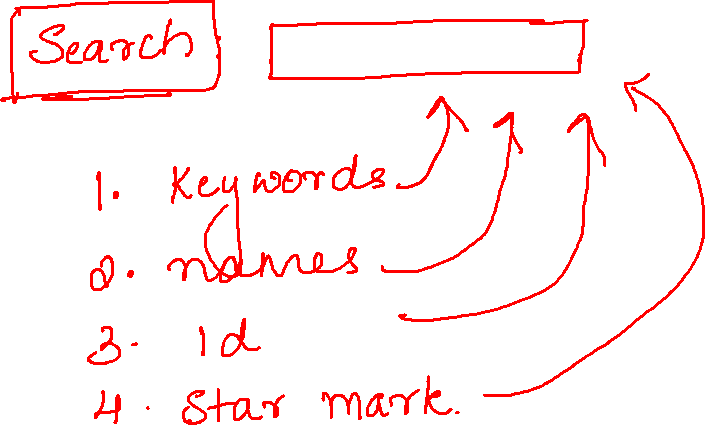 Search
1. Keywords
2. names
3. Id
4. Star mark.